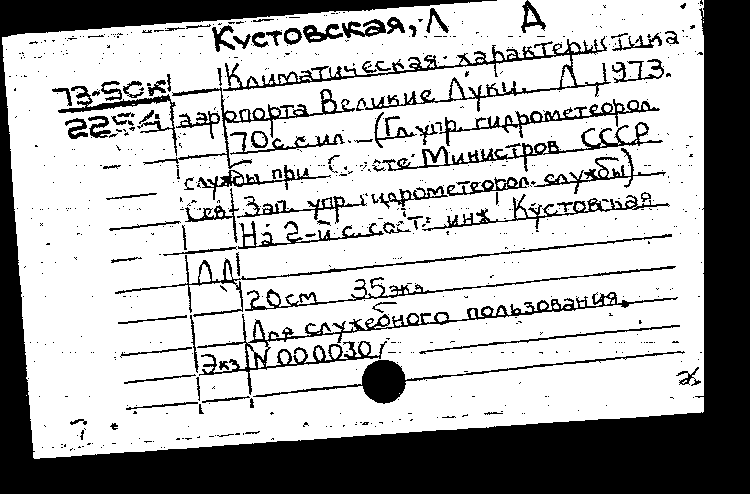 Кустовская, Л Д
73-50к Климатическая характеристика
2254 аэропорта Великие Луки. Л., 1973.
70с. с ил. (Гл. упр. гидрометеорол.
службы при Совете Министров СССР
Сев-Зап. упр. гидрометеорол. службы)
На 2-й с. сост: инж. Кустовская
Л Д
20см 35экз.
Для служебного пользования.
Экз N 000030